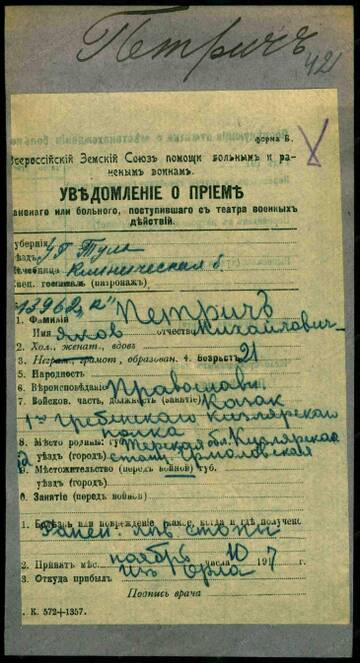 Петричъ
421
форма Б.
Всероссійскій Земскій Союзъ помощи больнымъ и ра-
ненымъ воинамъ.
УВѢДОМЛЕНІЕ О ПРІЕМѢ
раненаго или больного, поступившаго съ театра военныхъ
дѣйствій.
Губернія
уѣздъ г. Тула
Лечебница Клиническая б.
Спец. госпиталь (патронажъ)
13962 „к"
1. Фамилія Петричъ
Имя Яковъ отчество Михайловичъ
2. Хол., женат., вдовъ
3. Неграм., грамот, образован. 4. Возрастъ 21
5. Народность
6. Вѣроисповѣданіе Православн.
7. Войсков. часть, должность (занятіе) Казак
1го Гребенскаго Кизлярскаго
полка
8. Мѣсто родины: губ. Терская обл. Кизлярская
уѣздъ (городъ) стан. Ермоловская
9. Мѣстожительство (передъ войной) губ.
уѣздъ (городъ)
0. Занятіе (передъ войной)
1. Болѣзнь или поврежденіе какое, когда и гдѣ получено
Ранен. лѣв стопы
2. Принятъ мѣс. ноябрь числа 10 1917 г.
3. Откуда прибылъ из Орла
Подпись врача
К. 572+1357.